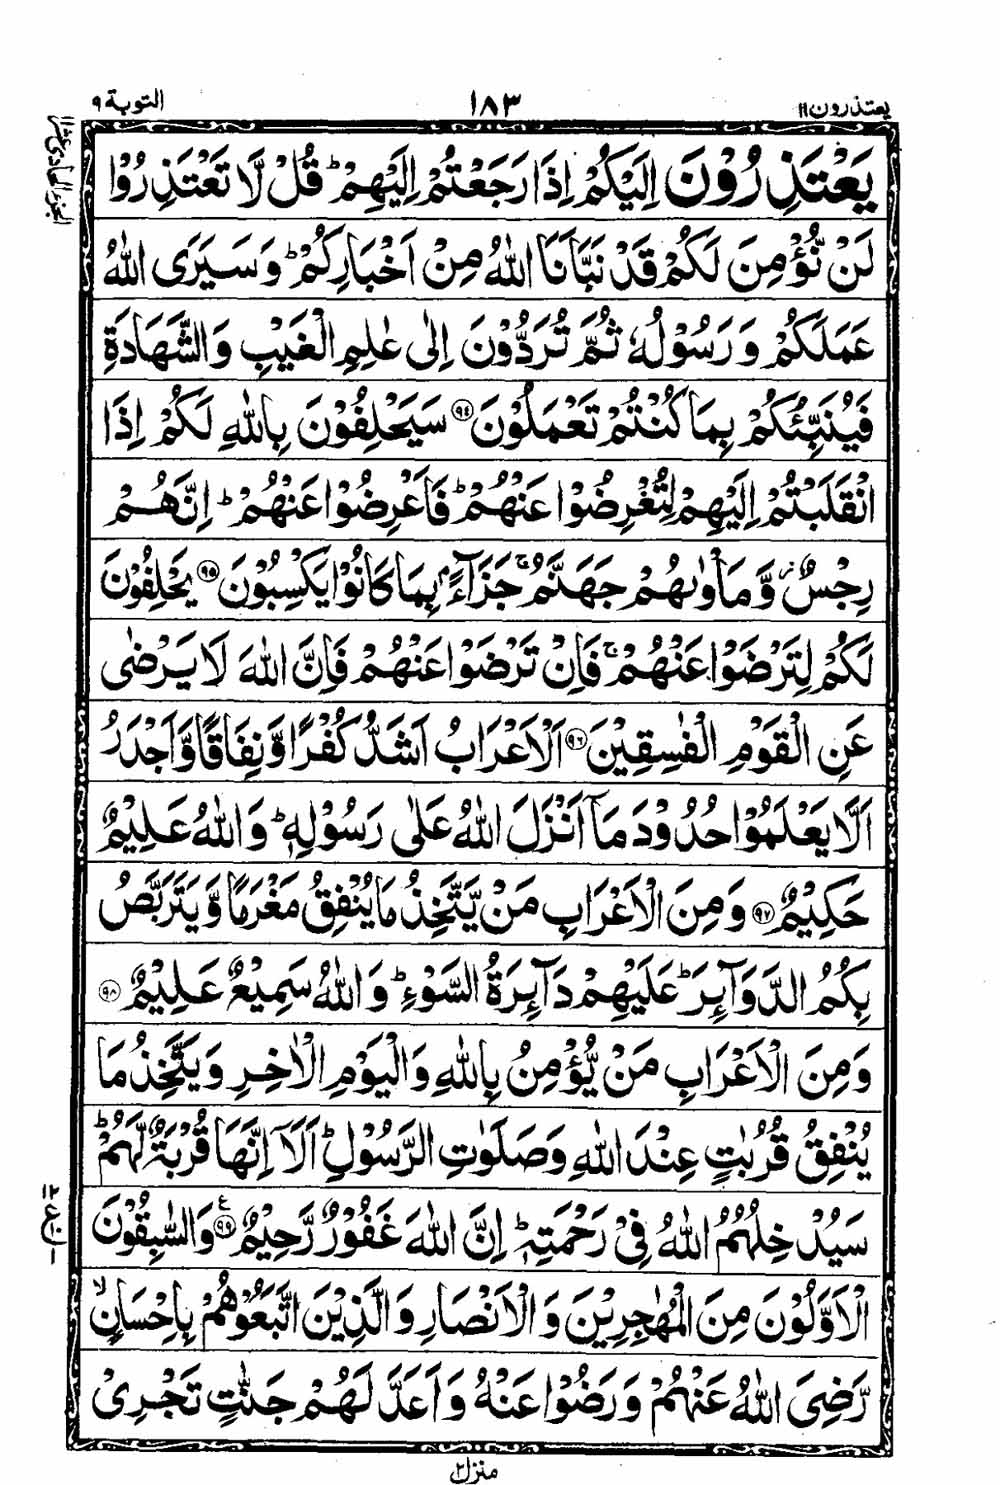 يعتذرون ١١
١٨٣
التوبة ٩
الجزء الحادي عشر
يَعْتَذِرُوْنَ اِلَيْكُمْ اِذَا رَجَعْتُمْ اِلَيْهِمْ ؕ قُلْ لَّا تَعْتَذِرُوْا
لَنْ نُّؤْمِنَ لَكُمْ قَدْ نَبَّاَنَا اللّٰهُ مِنْ اَخْبَارِكُمْ ؕ وَسَيَرَى اللّٰهُ
عَمَلَكُمْ وَرَسُوْلُهٗ ثُمَّ تُرَدُّوْنَ اِلٰى عٰلِمِ الْغَيْبِ وَالشَّهَادَةِ
فَيُنَبِّئُكُمْ بِمَا كُنْتُمْ تَعْمَلُوْنَ ﴿۹٤﴾ سَيَحْلِفُوْنَ بِاللّٰهِ لَكُمْ اِذَا
انْقَلَبْتُمْ اِلَيْهِمْ لِتُعْرِضُوْا عَنْهُمْ ؕ فَاَعْرِضُوْا عَنْهُمْ ؕ اِنَّهُمْ
رِجْسٌ ؗ وَّمَاْوٰىهُمْ جَهَنَّمُ ۚ جَزَآءًۢ بِمَا كَانُوْا يَكْسِبُوْنَ ﴿۹٥﴾ يَحْلِفُوْنَ
لَكُمْ لِتَرْضَوْا عَنْهُمْ ۚ فَاِنْ تَرْضَوْا عَنْهُمْ فَاِنَّ اللّٰهَ لَا يَرْضٰى
عَنِ الْقَوْمِ الْفٰسِقِيْنَ ﴿۹٦﴾ اَلْاَعْرَابُ اَشَدُّ كُفْرًا وَّنِفَاقًا وَّاَجْدَرُ
اَلَّا يَعْلَمُوْا حُدُوْدَ مَاۤ اَنْزَلَ اللّٰهُ عَلٰى رَسُوْلِهٖ ؕ وَاللّٰهُ عَلِيْمٌ
حَكِيْمٌ ﴿۹٧﴾ وَمِنَ الْاَعْرَابِ مَنْ يَّتَّخِذُ مَا يُنْفِقُ مَغْرَمًا وَّيَتَرَبَّصُ
بِكُمُ الدَّوَآئِرَ ؕ عَلَيْهِمْ دَآئِرَةُ السَّوْءِ ؕ وَاللّٰهُ سَمِيْعٌ عَلِيْمٌ ﴿۹٨﴾
وَمِنَ الْاَعْرَابِ مَنْ يُّؤْمِنُ بِاللّٰهِ وَالْيَوْمِ الْاٰخِرِ وَيَتَّخِذُ مَا
يُنْفِقُ قُرُبٰتٍ عِنْدَ اللّٰهِ وَصَلَوٰتِ الرَّسُوْلِ ؕ اَلَاۤ اِنَّهَا قُرْبَةٌ لَّهُمْ ؕ
سَيُدْخِلُهُمُ اللّٰهُ فِىْ رَحْمَتِهٖ ؕ اِنَّ اللّٰهَ غَفُوْرٌ رَّحِيْمٌ ﴿۹۹﴾ ع وَالسّٰبِقُوْنَ
الْاَوَّلُوْنَ مِنَ الْمُهٰجِرِيْنَ وَالْاَنْصَارِ وَالَّذِيْنَ اتَّبَعُوْهُمْ بِاِحْسَانٍ ۙ
رَّضِىَ اللّٰهُ عَنْهُمْ وَرَضُوْا عَنْهُ وَاَعَدَّ لَهُمْ جَنّٰتٍ تَجْرِىْ
منزل ٢